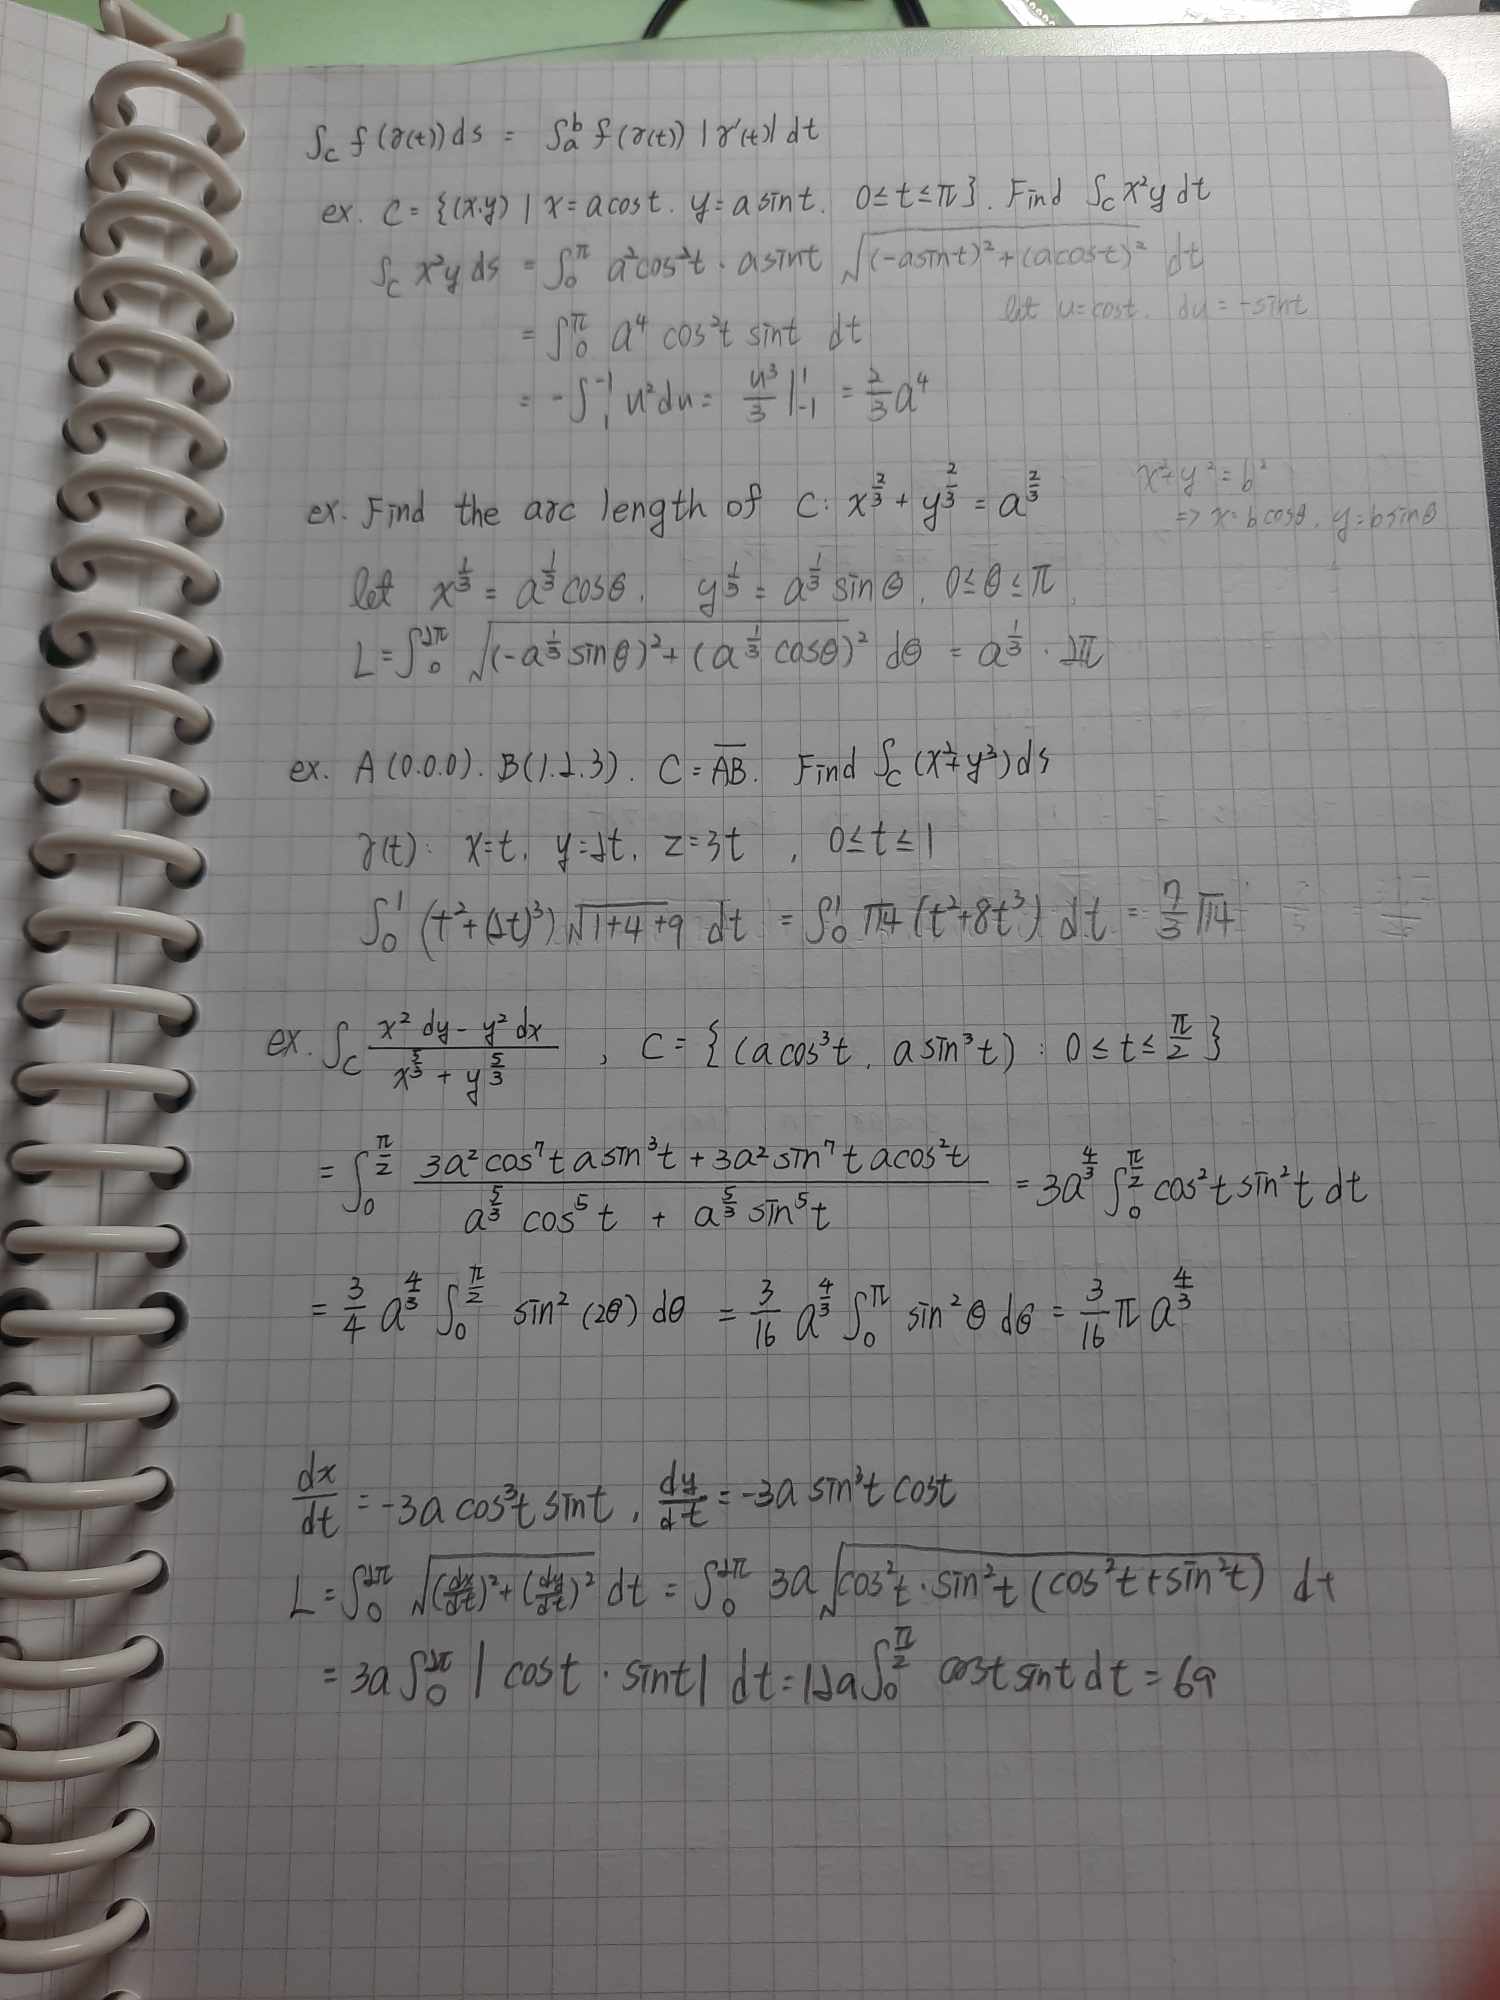 ∫_C f(γ(t)) ds = ∫_a^b f(γ(t)) |γ'(t)| dt
ex. C = {(x.y) | x = a cos t. y = a sin t. 0 ≤ t ≤ π}. Find ∫_C x²y dt
∫_C x²y ds = ∫_0^π a²cos²t · a sin t √((-a sin t)² + (a cos t)²) dt
let u = cos t. du = -sin t
= ∫_0^π a⁴ cos²t sin t dt
= -∫_1^{-1} u² du = u³/3 |_{-1}^1 = 2/3 a⁴
x² + y² = b²
ex. Find the arc length of C: x^{2/3} + y^{2/3} = a^{2/3}
=> x = b cosθ. y = b sinθ
let x^{1/3} = a^{1/3} cosθ. y^{1/3} = a^{1/3} sinθ. 0 ≤ θ ≤ π.
L = ∫_0^{2π} √((-a^{1/3} sinθ)² + (a^{1/3} cosθ)²) dθ = a^{1/3} · 2π
ex. A(0.0.0). B(1.2.3). C = \overline{AB}. Find ∫_C (x² + y³) ds
γ(t): x = t. y = 2t. z = 3t , 0 ≤ t ≤ 1
∫_0^1 (t² + (2t)³) √(1+4+9) dt = ∫_0^1 √14 (t² + 8t³) dt = 7/3 √14
ex. ∫_C (x² dy - y² dx)/(x^{5/3} + y^{5/3}) , C = {(a cos³t. a sin³t) : 0 ≤ t ≤ π/2}
= ∫_0^{π/2} (3a² cos⁷t a sin³t + 3a² sin⁷t a cos²t)/(a^{5/3} cos⁵t + a^{5/3} sin⁵t) = 3a^{4/3} ∫_0^{π/2} cos²t sin²t dt
= 3/4 a^{4/3} ∫_0^{π/2} sin²(2θ) dθ = 3/16 a^{4/3} ∫_0^π sin²θ dθ = 3/16 π a^{4/3}
dx/dt = -3a cos³t sin t, dy/dt = -3a sin³t cos t
L = ∫_0^{2π} √((dx/dt)² + (dy/dt)²) dt = ∫_0^{2π} 3a √(cos²t · sin²t (cos²t + sin²t)) dt
= 3a ∫_0^{2π} |cos t · sin t| dt = 12a ∫_0^{π/2} cos t sin t dt = 6a